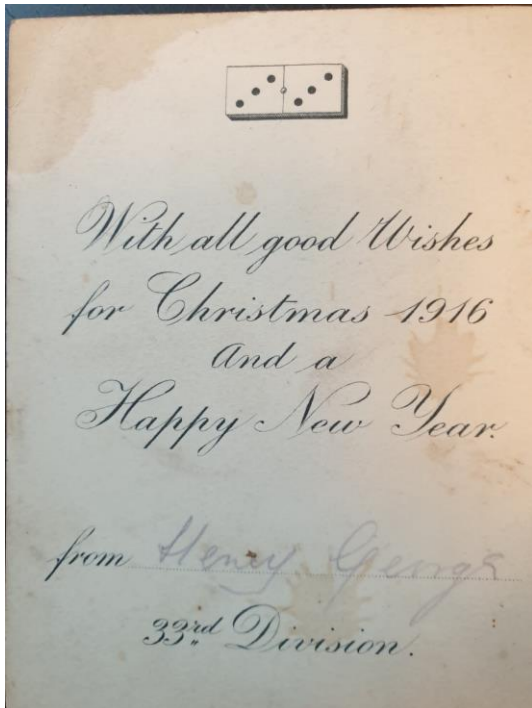 With all good Wishes
for Christmas 1916
And a
Happy New Year.
from Henry George
33rd Division.